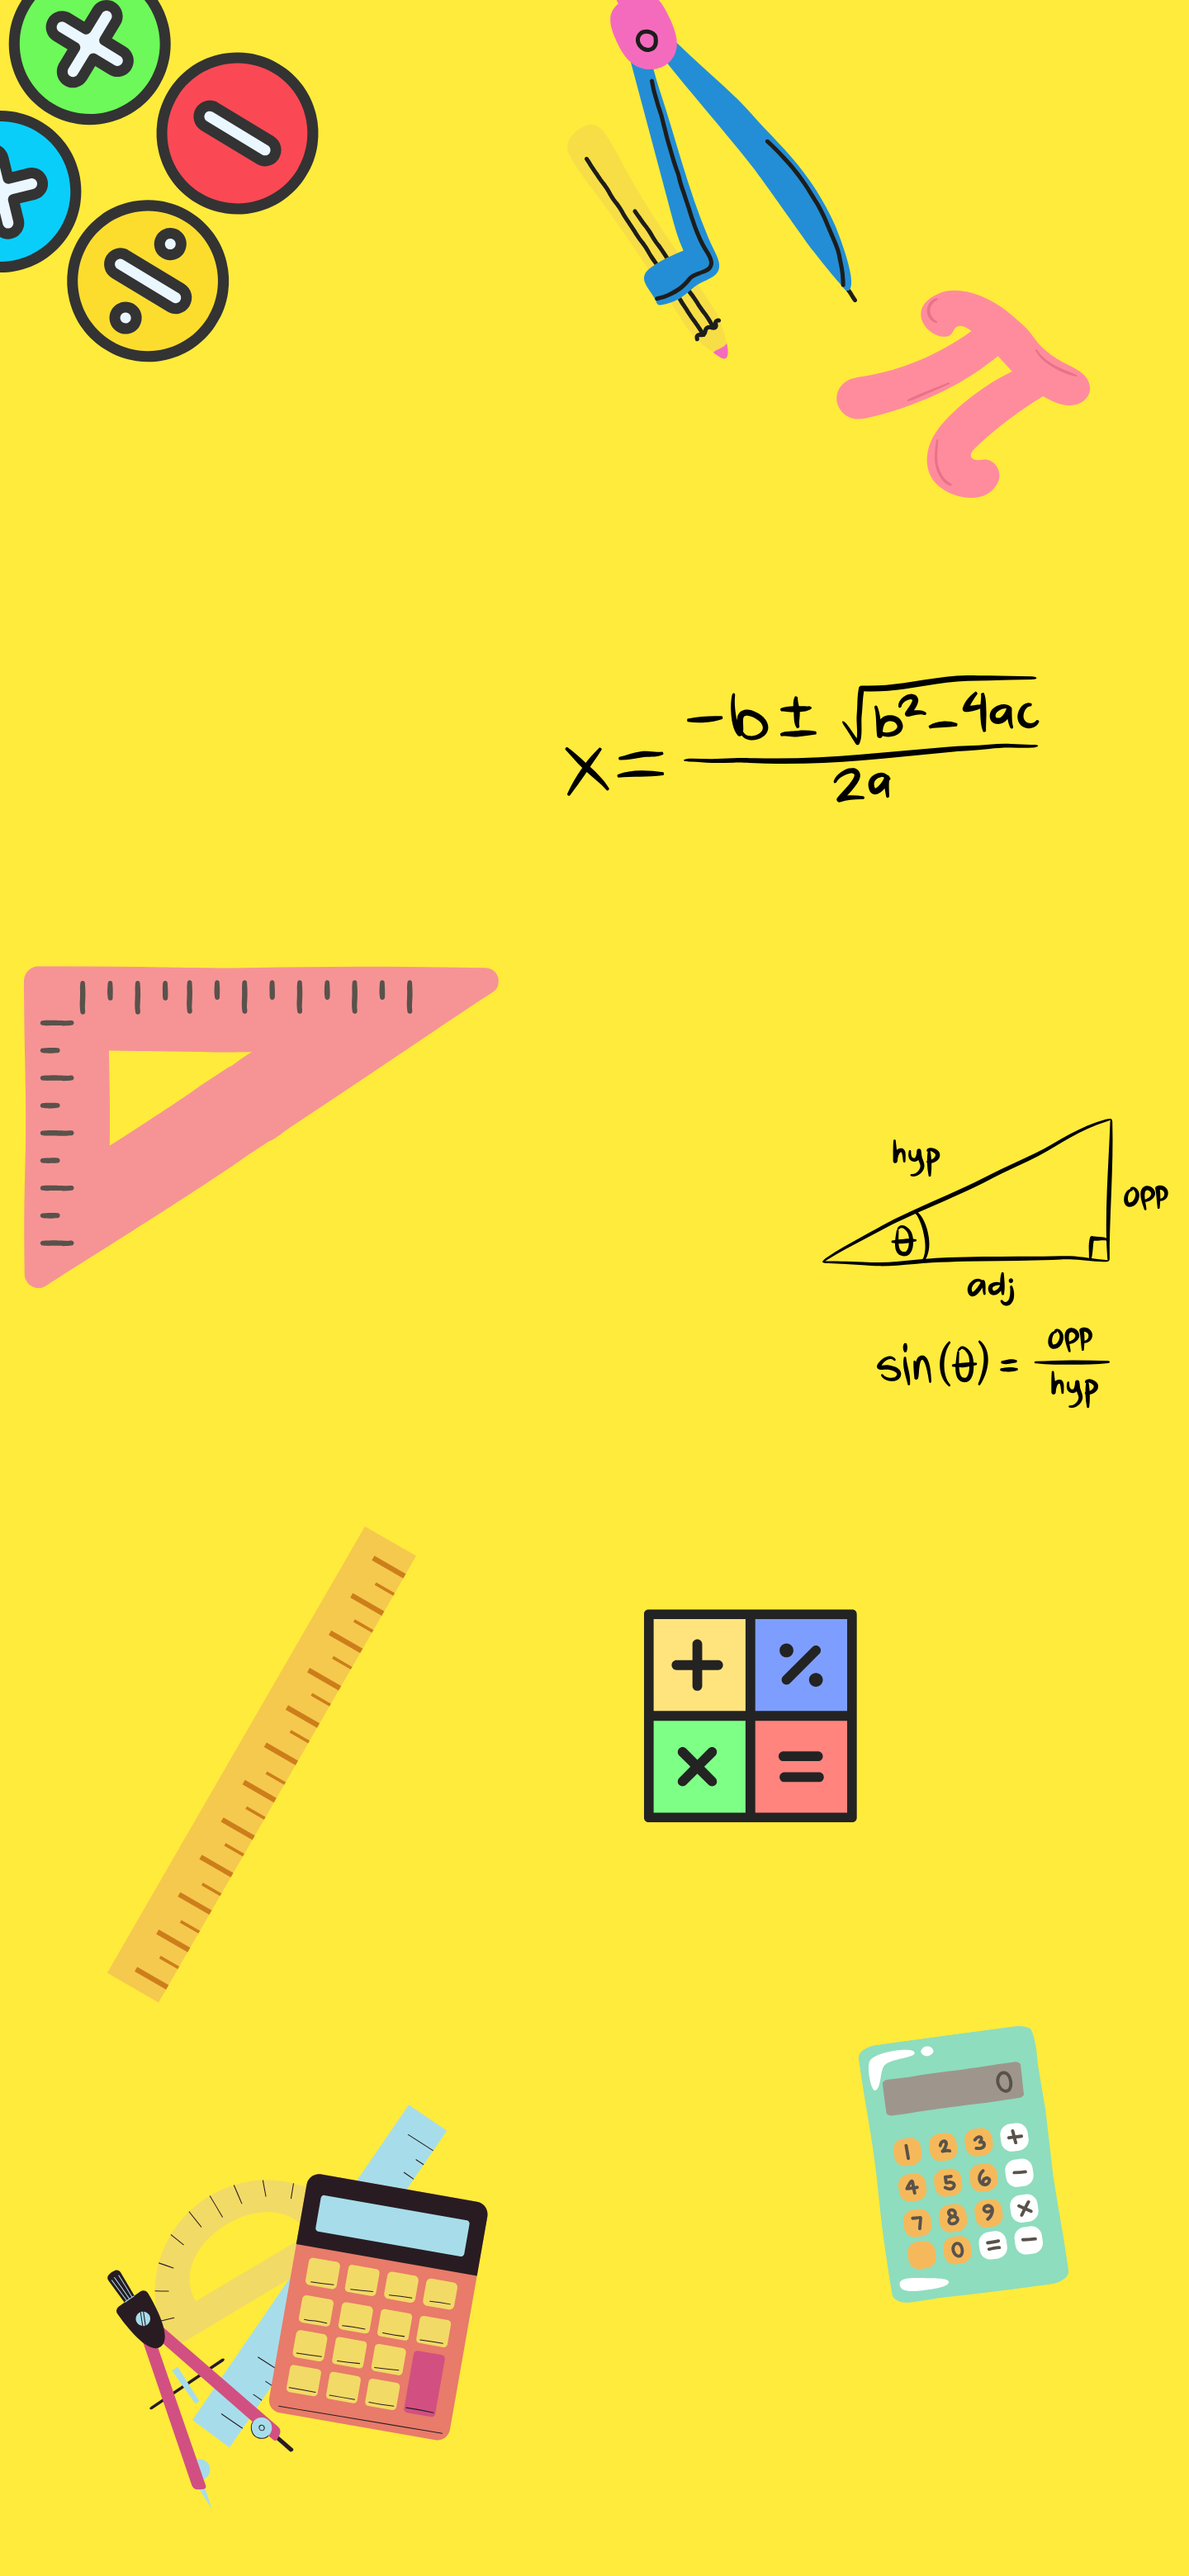 x = -b ± √b² - 4ac
2a
hyp
opp
θ
adj
sin(θ) = opp
hyp
+ %
× =
0
1 2 3 +
4 5 6 −
7 8 9 ×
0 = −